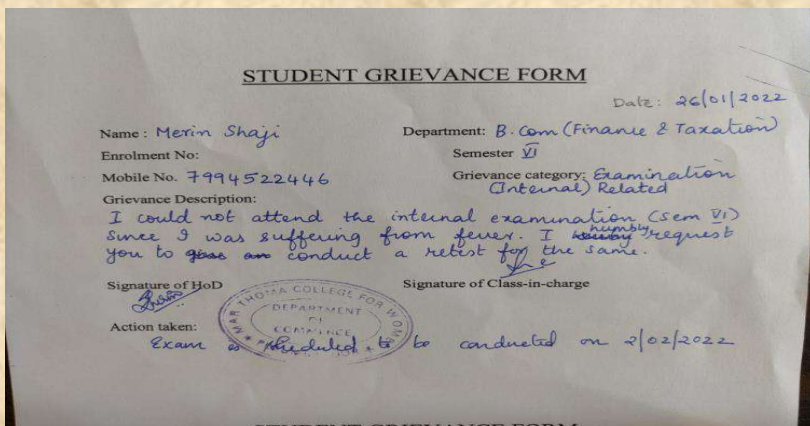 STUDENT GRIEVANCE FORM
Date: 26/01/2022
Name: Merin Shaji Department: B.Com (Finance & Taxation)
Enrolment No: Semester VI
Mobile No. 7994522446 Grievance category: Examination
(Internal) Related
Grievance Description:
I could not attend the internal examination (Sem VI)
since I was suffering from fever. I humbly request
you to conduct a retist for the same.
Signature of HoD Signature of Class-in-charge
MAR THOMA COLLEGE FOR WOMEN
DEPARTMENT
OF
COMMERCE
Action taken:
Exam is scheduled to be conducted on 2/02/2022
STUDENT GRIEVANCE FORM